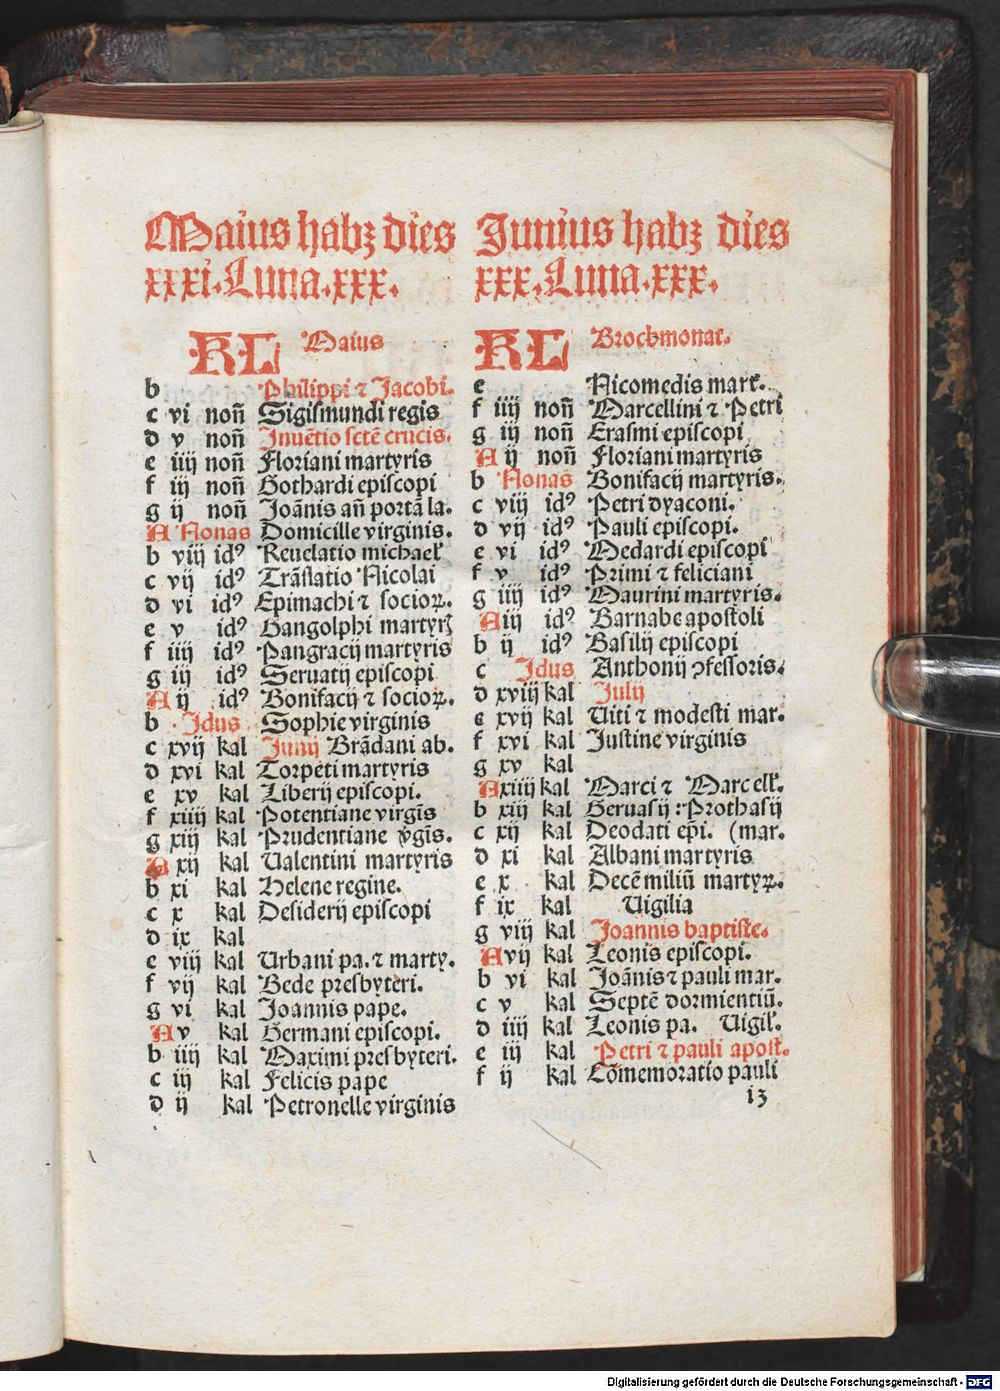 Maius habꝫ dies
xxxi. Luna. xxx.
KL Maius
b Philippi ⁊ Jacobi.
c vi non̄ Sigismundi regis
d v non̄ Inuētio sctē crucis.
e iiij non̄ Floriani martyris
f iij non̄ Gothardi episcopi
g ij non̄ Joānis an̄ portā la.
A Nonas Domicille virginis.
b viij idꝰ Reuelatio michael̕
c vij idꝰ Trāslatio Nicolai
d vi idꝰ Epimachi ⁊ socioꝝ.
e v idꝰ Gangolphi martyrꝭ
f iiij idꝰ Pangracij martyris
g iij idꝰ Seruatij episcopi
A ij idꝰ Bonifacij ⁊ socioꝝ.
b Idus Sophie virginis
c xvij kal Junij Brādani ab.
d xvi kal Torpeti martyris
e xv kal Liberij episcopi.
f xiiij kal Potentiane virgīs
g xiij kal Prudentiane v̄gīs.
A xij kal Ualentini martyris
b xi kal Helene regine.
c x kal Desiderij episcopi
d ix kal
e viij kal Urbani pa. ⁊ marty.
f vij kal Bede presbyteri.
g vi kal Joannis pape.
A v kal Germani episcopi.
b iiij kal Maximi presbyteri.
c iij kal Felicis pape
d ij kal Petronelle virginis
Junius habꝫ dies
xxx. Luna. xxx.
KL Brochmonat.
e Nicomedis mart̕.
f iiij non̄ Marcellini ⁊ Petri
g iij non̄ Erasmi episcopi
A ij non̄ Floriani martyris
b Nonas Bonifacij martyris.
c viij idꝰ Petri dyaconi.
d vij idꝰ Pauli episcopi.
e vi idꝰ Medardi episcopi
f v idꝰ Primi ⁊ feliciani
g iiij idꝰ Maurini martyris.
A iij idꝰ Barnabe apostoli
b ij idꝰ Basilij episcopi
c Idus Anthonij ꝯfessoris.
d xviij kal Julij
e xvij kal Uiti ⁊ modesti mar.
f xvi kal Justine virginis
g xv kal
A xiiij kal Marci ⁊ Marcell̕.
b xiij kal Geruasij : Prothasij
c xij kal Deodati ep̄i. (mar.
d xi kal Albani martyris
e x kal Decē miliū martyꝝ.
f ix kal Uigilia
g viij kal Joannis baptiste.
A vij kal Leonis episcopi.
b vi kal Joānis ⁊ pauli mar.
c v kal Septē dormientiū.
d iiij kal Leonis pa. Uigil̕.
e iij kal Petri ⁊ pauli apost̕.
f ij kal Cōmemoratio pauli
13
Digitalisierung gefördert durch die Deutsche Forschungsgemeinschaft - DFG